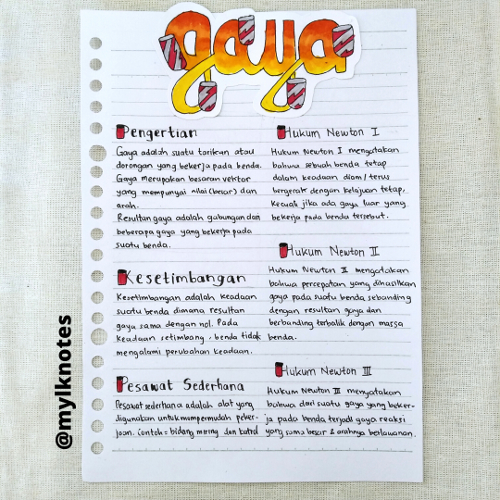 gaya
Pengertian
Gaya adalah suatu tarikan atau
dorongan yang bekerja pada benda.
Gaya merupakan besaran vektor
yang mempunyai nilai (besar) dan
arah.
Resultan gaya adalah gabungan dari
beberapa gaya yang bekerja pada
suatu benda.
Kesetimbangan
Kesetimbangan adalah keadaan
suatu benda dimana resultan
gaya sama dengan nol. Pada
keadaan setimbang, benda tidak
mengalami perubahan keadaan.
Pesawat Sederhana
Pesawat sederhana adalah alat yang
digunakan untuk mempermudah peker-
jaan. Contoh = bidang miring dan katrol
Hukum Newton I
Hukum Newton I mengatakan
bahwa sebuah benda tetap
dalam keadaan diam / terus
bergerak dengan kelajuan tetap,
kecuali jika ada gaya luar yang
bekerja pada benda tersebut.
Hukum Newton II
Hukum Newton II mengatakan
bahwa percepatan yang dihasilkan
gaya pada suatu benda sebanding
dengan resultan gaya dan
berbanding terbalik dengan massa
benda.
Hukum Newton III
Hukum Newton III menyatakan
bahwa dari suatu gaya yang beker-
ja pada benda terjadi gaya reaksi
yang sama besar & arahnya berlawanan.
@mylknotes